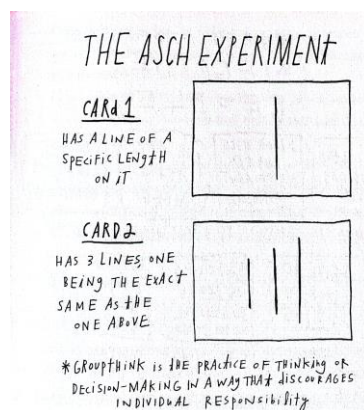 THE ASCH EXPERIMENT
CARd 1
HAS A LINE OF A
SPECIFIC LENGtH
ON iT
CARD 2
HAS 3 LINES, ONE
BEING THE EXACt
SAME AS tHE
ONE ABOVE
*GROUPtHiNK is tHE PRACtiCE OF tHiNKiNG OR
DECiSiON-MAKiNG iN A WAY tHAt diSCOURAGES
iNDiViDUAL RESPONSiBiLity